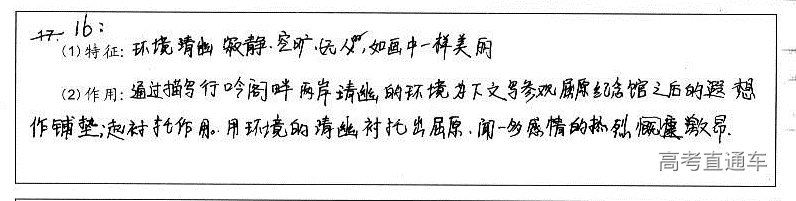 17. 16:
(1)特征: 环境清幽 寂静·空旷·无人,如画中一样美丽
(2)作用: 通过描写行吟阁畔两岸清幽的环境为下文写参观屈原纪念馆之后的遐想
作铺垫;起衬托作用。用环境的清幽衬托出屈原、闻一多感情的热烈慷慨激昂.
高考直通车